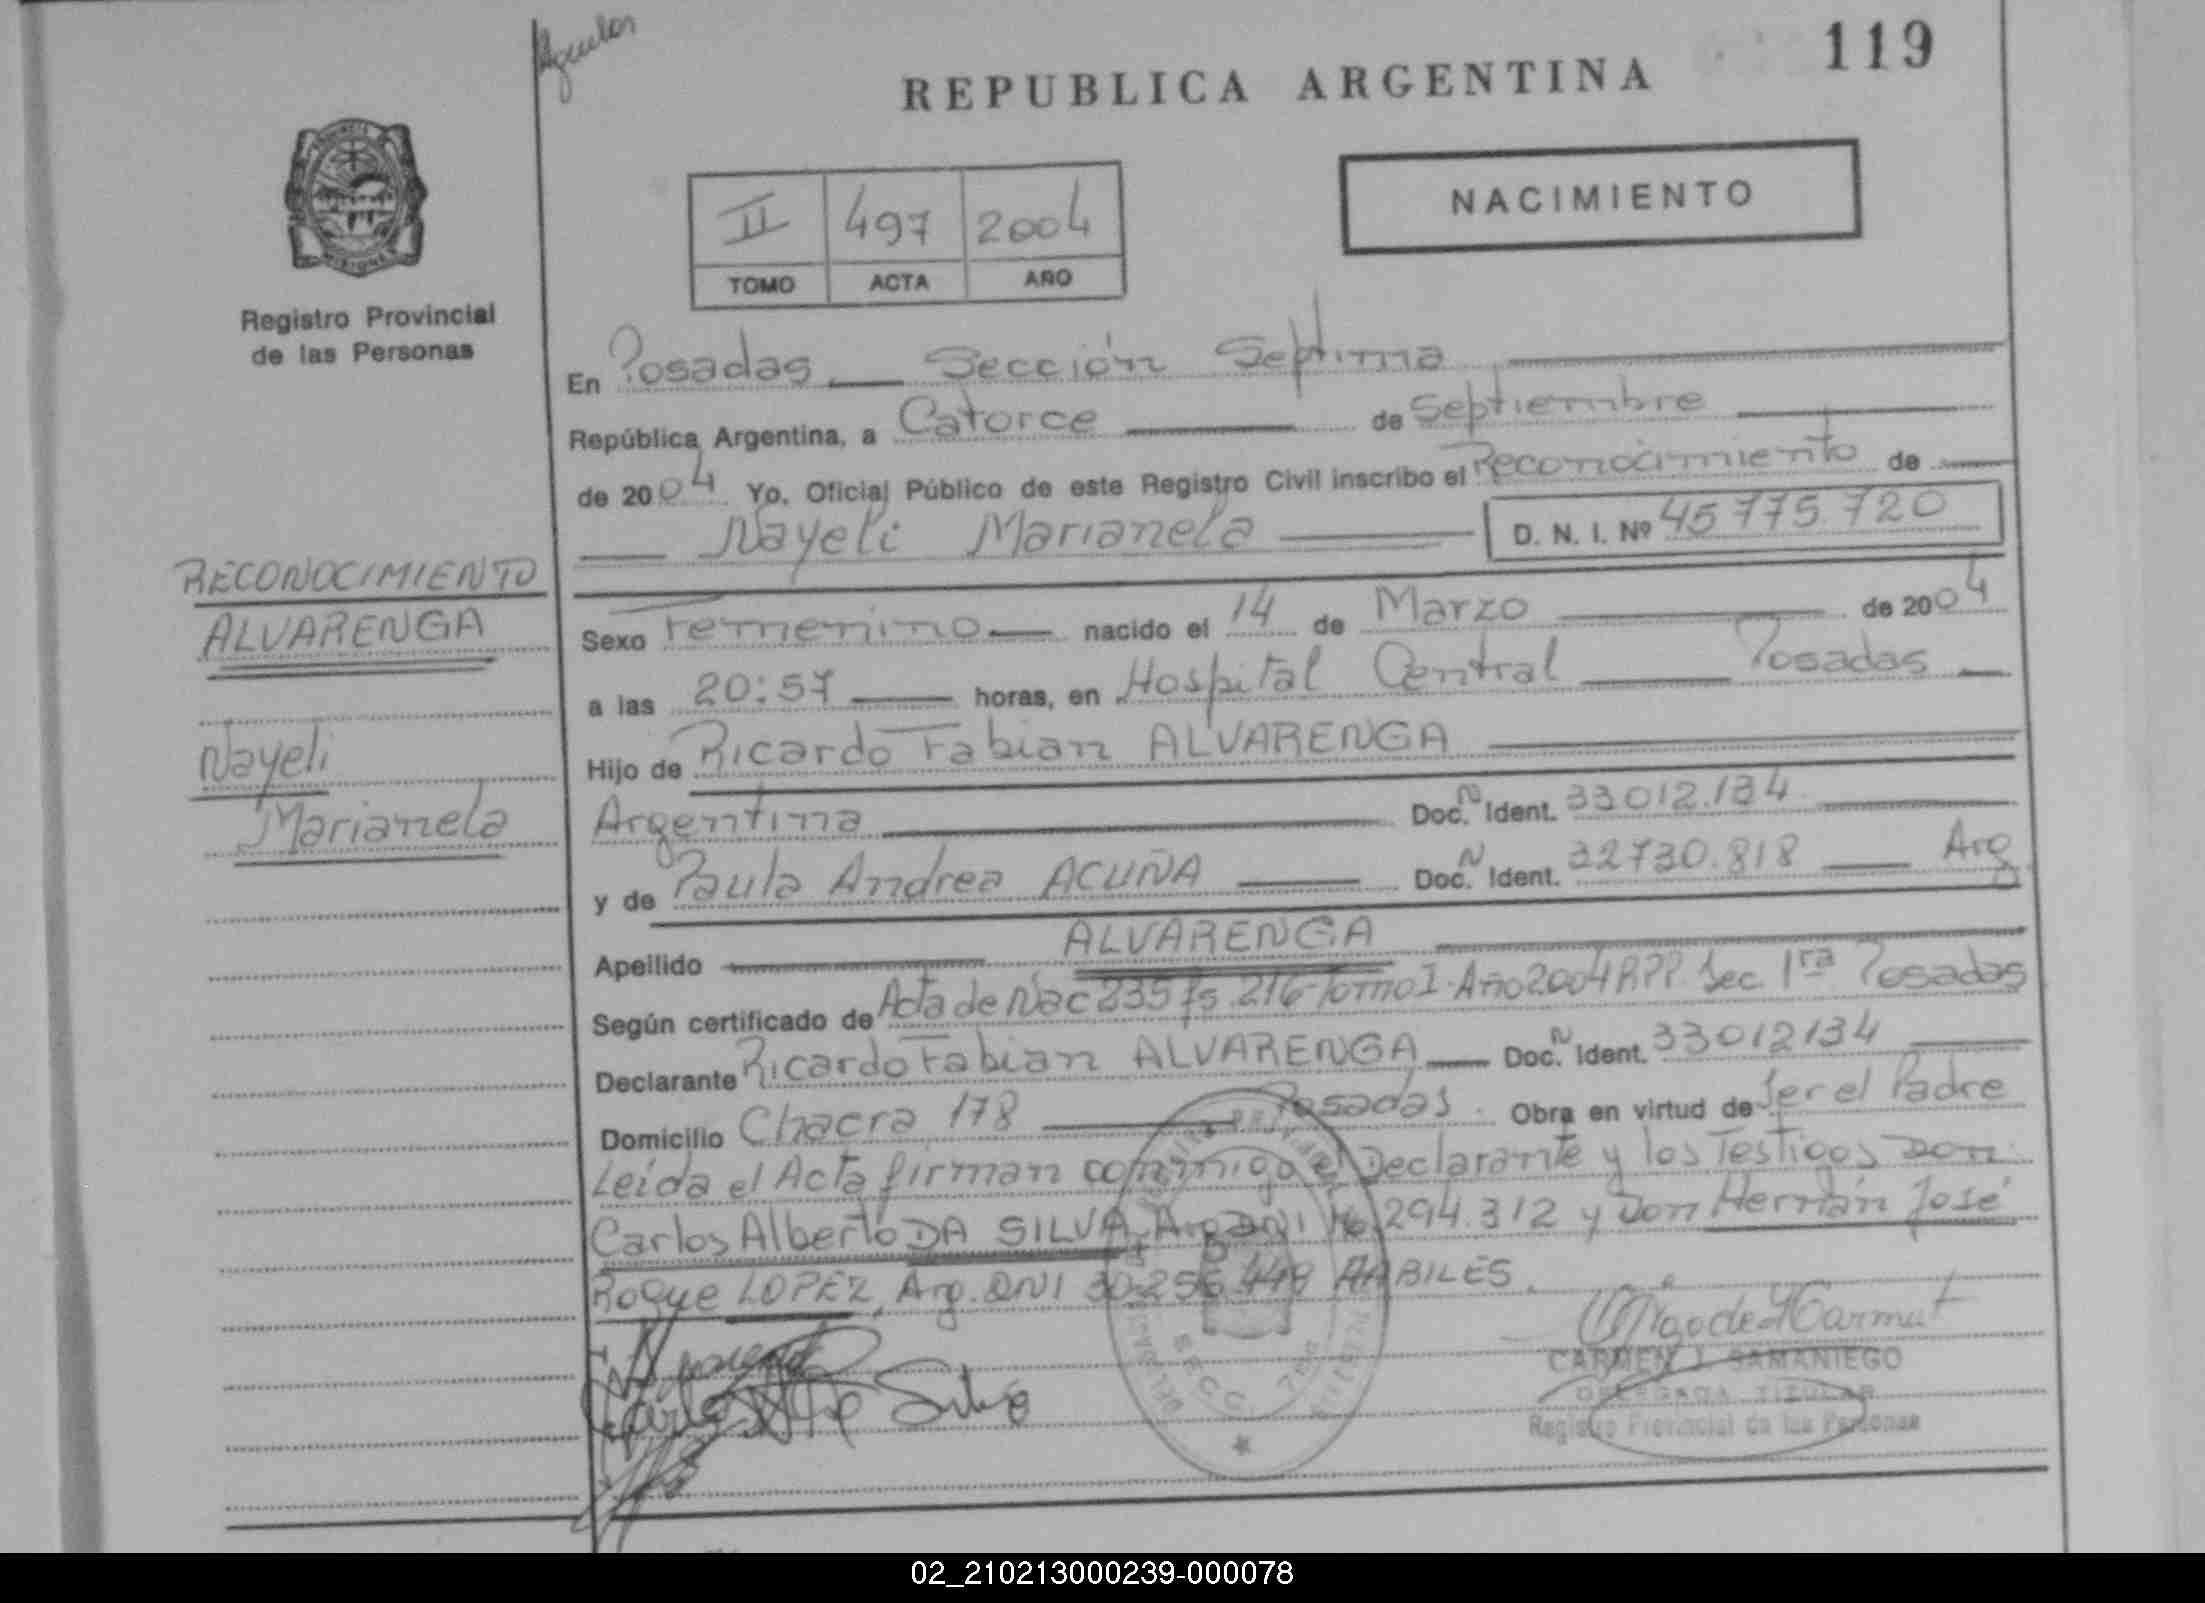 119
REPUBLICA ARGENTINA
NACIMIENTO
II 497 2004
TOMO ACTA AÑO
Registro Provincial
de las Personas
En Posadas Sección Septima
República Argentina, a Catorce de Septiembre
de 2004 Yo, Oficial Público de este Registro Civil inscribo el Reconocimiento de
Nayeli Marianela D. N. I. Nº 45775.720
RECONOCIMIENTO
ALVARENGA
Nayeli
Marianela
Sexo Femenino nacido el 14 de Marzo de 2004
a las 20:57 horas, en Hospital Central Posadas
Hijo de Ricardo Fabian ALVARENGA
Argentina Doc. N Ident. 33012.134
y de Paula Andrea ACUÑA Doc. N Ident. 32730.818 Arg
Apellido ALVARENGA
Según certificado de Acta de Nac 235 fs. 216-Tomo I-Año 2004 RPP. Sec. 1ra Posadas
Declarante Ricardo Fabian ALVARENGA Doc. N Ident. 33012134
Domicilio Chacra 178 Posadas. Obra en virtud de Ser el Padre
Leída el Acta firman conmigo el Declarante y los Testigos Don
Carlos Alberto DA SILVA, Arg DNI 294.312 y Don Hernán José
Roque LOPEZ, Arg. DNI 30.256.449 HABILES.
CARMEN J. SAMANIEGO
DELEGADA TITULAR
Registro Provincial de las Personas
02_210213000239-000078